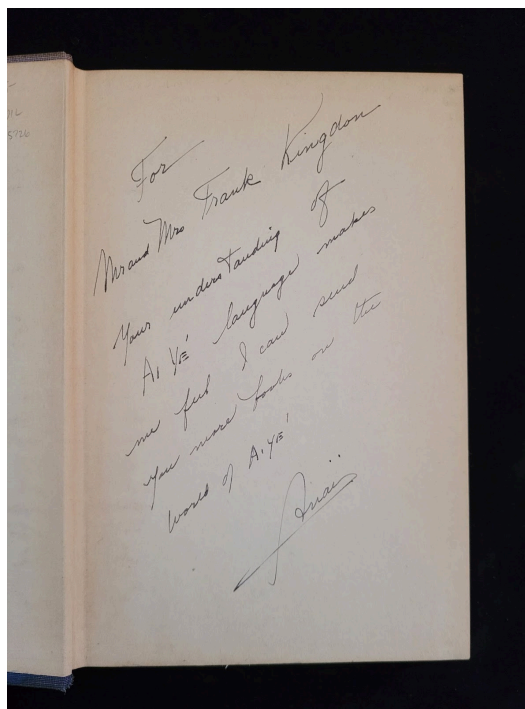 For
Mr and Mrs Frank Kingdon
Your understanding of
AI YE' language makes
me feel I can send
you more books on the
world of A.YE'
Anaïs